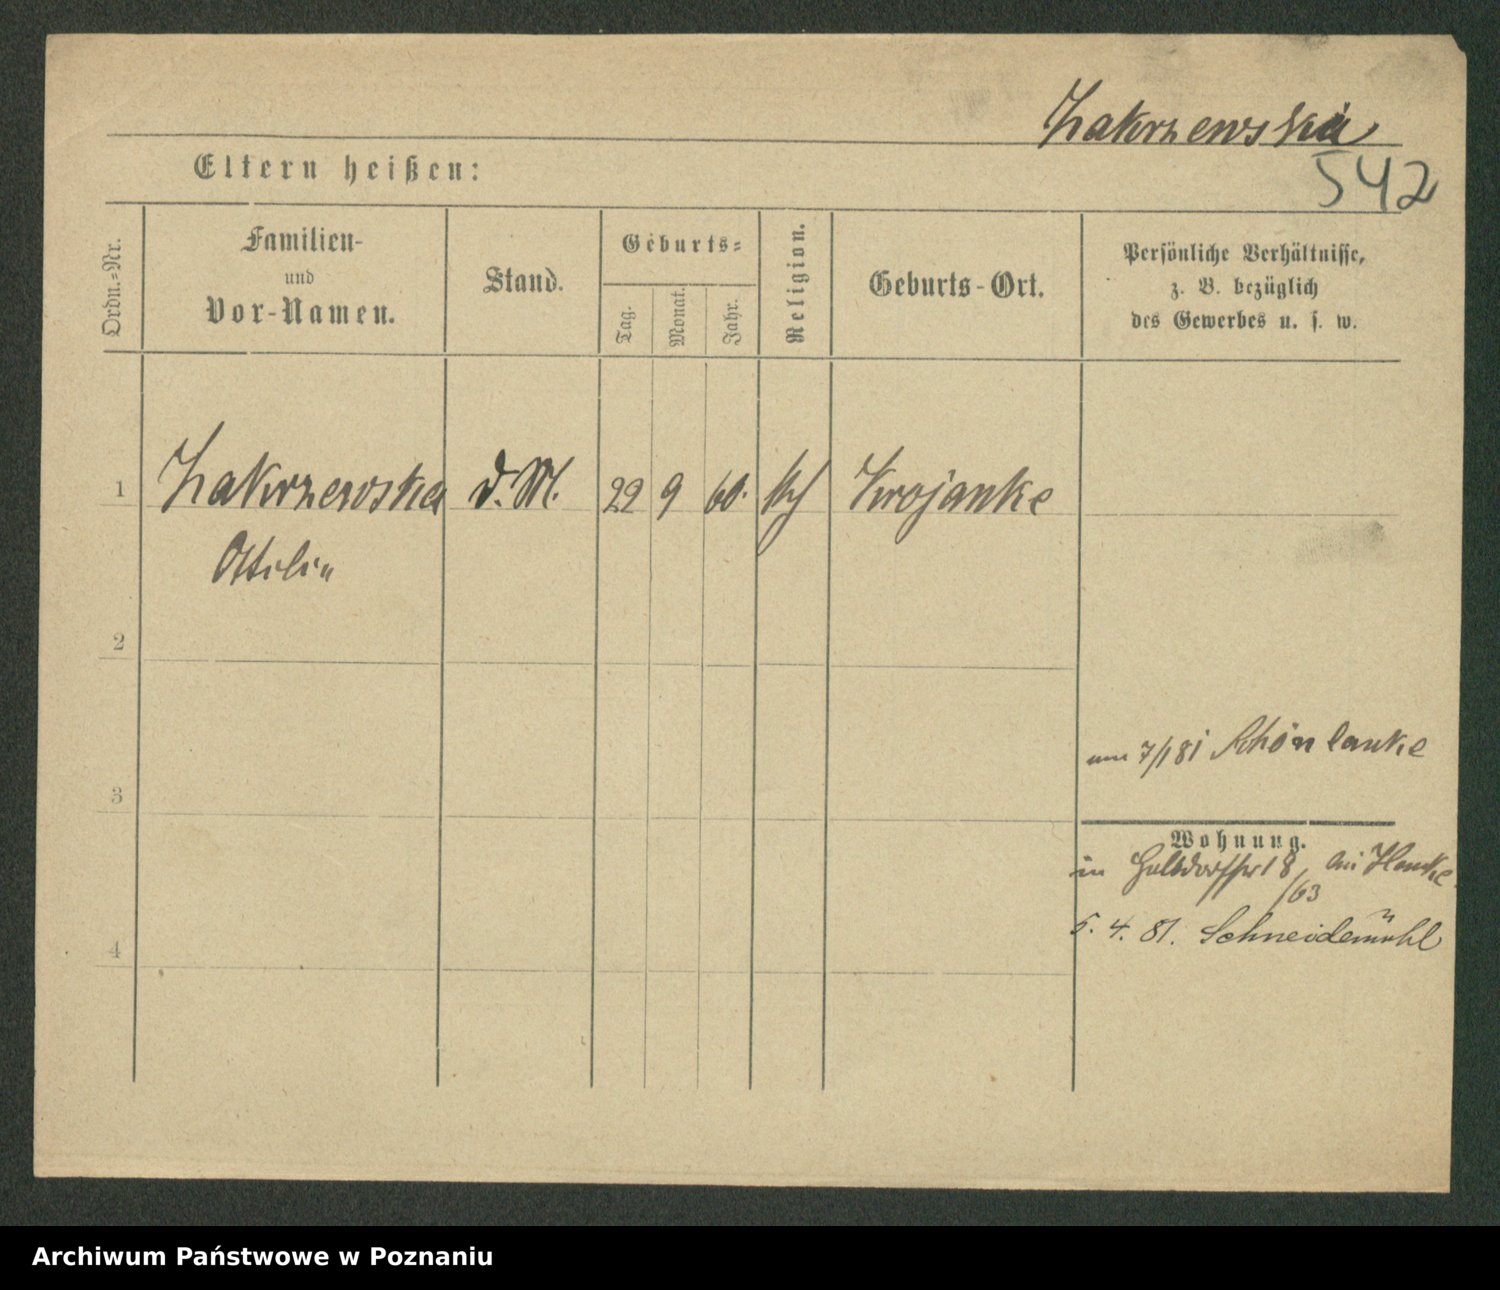 Zakrzewska
542
Eltern heißen:
Ordn.-Nr.
Familien-
und
Vor-Namen.
Stand.
Geburts-
Tag.
Monat.
Jahr.
Religion.
Geburts-Ort.
Persönliche Verhältnisse,
z. B. bezüglich
des Gewerbes u. s. w.
1 Zakrzewska d. M. 22 9 60. kth Krojanke
Ottilie
2
3
7/1 81 Schönlanke
Wohnung.
in 18, bei Hanke
/63
4
5. 4. 81. Schneidemühl
Archiwum Państwowe w Poznaniu